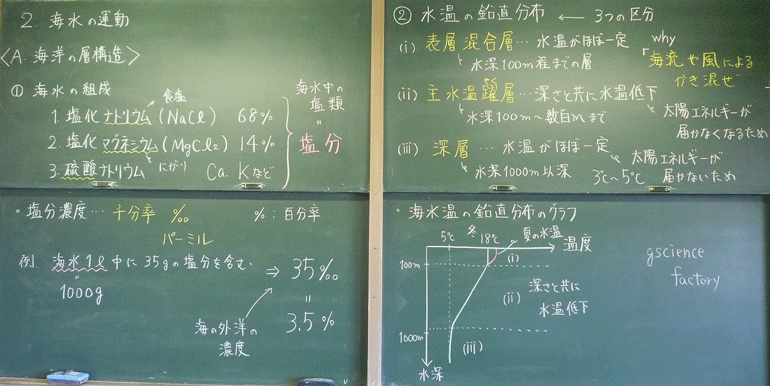 2. 海水の運動
<A. 海洋の層構造>
① 海水の組成
食塩
1. 塩化ナトリウム (NaCl) 68%
2. 塩化マグネシウム (MgCl2) 14%
にがり
3. 硫酸ナトリウム Ca. Kなど
海水中の
塩類
〃
塩分
・塩分濃度…千分率 ‰ %:百分率
パーミル
例. 海水1ℓ中に35gの塩分を含む
〃
1000g
⇒ 35‰
〃
3.5%
海の外洋の
濃度
② 水温の鉛直分布 ← 3つの区分
(i) 表層混合層…水温がほぼ一定
水深100m程までの層
why
「海流や風による
かき混ぜ
(ii) 主水温躍層…深さと共に水温低下
やく
水深100m~数百mまで
太陽エネルギーが
届かなくなるため
(iii) 深層…水温がほぼ一定
水深1000m以深
太陽エネルギーが
届かないため
3℃~5℃
・海水温の鉛直分布のグラフ
5℃ 冬 18℃ 夏の水温
温度
100m
(i)
(ii) 深さと共に
水温低下
1000m
(iii)
水深
gscience
factory